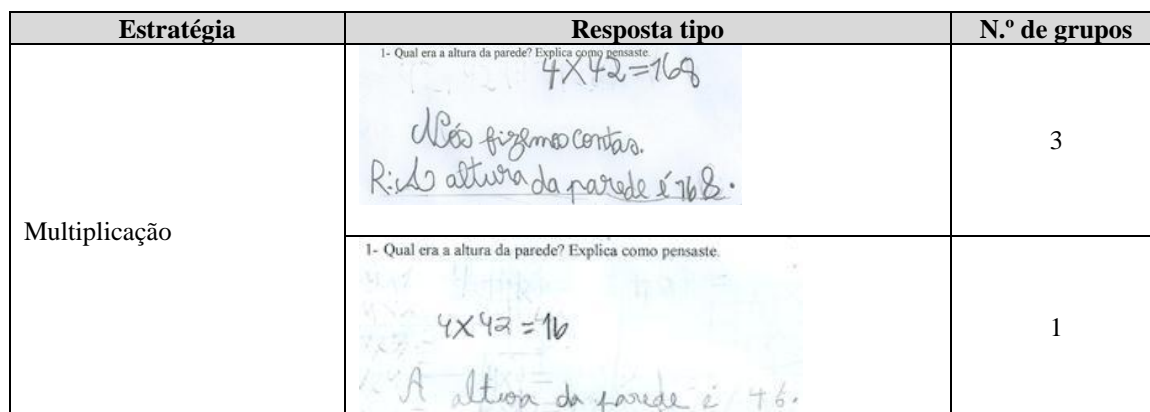 Estratégia Resposta tipo N.º de grupos
Multiplicação
1- Qual era a altura da parede? Explica como pensaste.
4X42=168
Nós fizemos contas.
R:A altura da parede é 168.
3
1- Qual era a altura da parede? Explica como pensaste.
4X42=16
A altura da parede é 16.
1